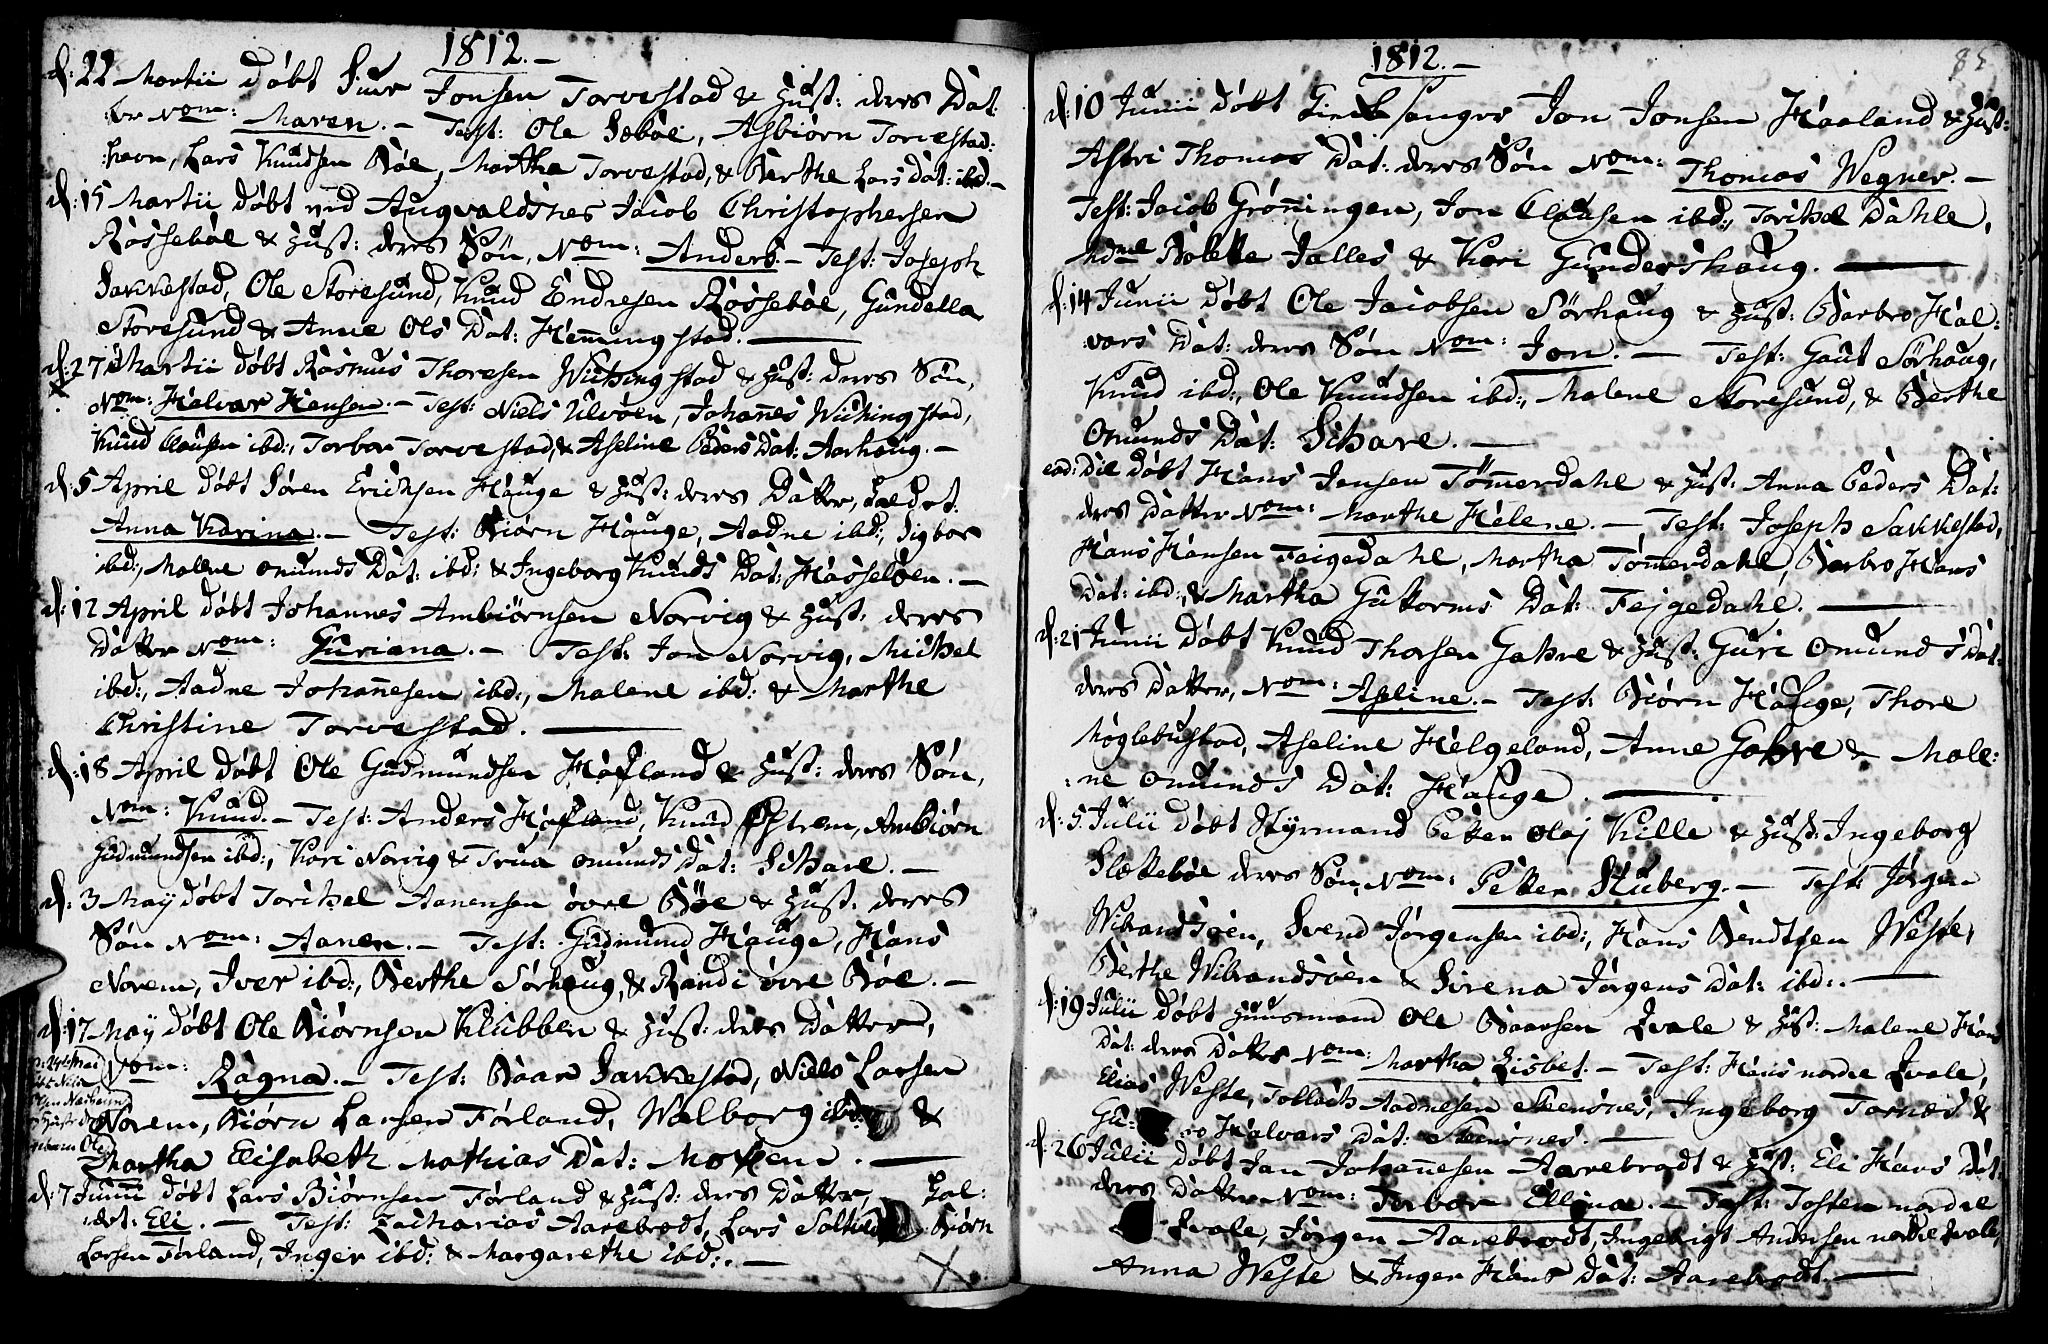 1812.-
d: 22 Martii døbt Siur Jonsen Torvestad & Hust: deres Dat:
ter Nom: Maren. - Test: Ole Sebøe, Asbiørn Torvestad:
:havn, Lars Knudsen Bøe, Martha Torvestad, & Berthe Lars Dat: ibd. -
d: 15 Martii døbt ved Augvaldsnes Jacob Christophersen
Røssebøe & Hust: deres Søn, Nom: Anders. - Test: Joseph
Sakkestad, Ole Storesund, Knud Endresen Røssebøe, Gundella
Storesund & Anne Ols Dat: Hemmingstad. -
d: 27 Martii døbt Rasmus Thoresen Wichingstad & Hust: deres Søn,
Nom: Halvar Hensen. - Test: Niels Ulvøen, Johannes Wichingstad,
Knud Clausen ibd:, Torbor Torvestad, & Aseline Peders Dat: Aarhoug. -
d: 5 April døbt Søren Ericksen Hauge & Hust: deres Datter, kaldet:
Anna Karina. - Test: Biørn Hauge, Aadne ibd:, Sigbor
ibd:, Malene Omunds Dat: ibd: & Ingeborg Knuds Dat: Hasseløen. -
d: 12 April døbt Johannes Ambiørnsen Norvig & Hust: deres
Datter Nom: Guriana. - Test: Jon Norvig, Michel
ibd:, Aadne Johannesen ibd:, Malene ibd: & Marthe
Christine Torvestad. -
d: 18 April døbt Ole Gudmundsen Hafland & Hust: deres Søn,
Nom: Knud. - Test: Anders Hafland, Knud Østrem, Ambiørn
Gudmundsen ibd:, Kari Norvig & Trua Omunds Dat: Schare. -
d: 3 May døbt Torichel Aanensen øvre Bøe & Hust: deres
Søn Nom: Aanen. - Test: Gudmund Hauge, Hans
Norem, Iver ibd:, Berthe Sørhaug, & Randi øvre Bøe. -
d: 17 May døbt Ole Biørnsen Klubben & Hust: deres Datter,
Nom: Ragna. - Test: Baar Sakkestad, Niels Larsen
Norem, Biørn Larsen Førland, Walborg ibd: &
Martha Elisabeth Mathias Dat: -
d: 7 Junii døbt Lars Biørnsen Førland & Hust: deres Datter, kal:
:det: Eli. - Test: Zacharias Aarebrodt, Lars Biørn
Larsen Førland, Inger ibd: & Margarethe ibd:. -
1812. -
85
d: 10 Junii døbt Jon Jonsen Haaland & Hust:
Astri Thomas Dat: deres Søn Nom: Thomas Wegner. -
Test: Jacob Grønningen, Jon Clausen ibd:, Torichel Dahle,
Mdme Bolette Jalles & Kari Gundershaug. -
d: 14 Junii døbt Ole Jacobsen Sørhaug & Hust: Barbro Hal:
:vors Dat: deres Søn Nom: Jon. - Test: Gaut Sørhaug,
Knud ibd:, Ole Knudsen ibd:, Malene Storesund, & Berthe
Omunds Dat: Schare. -
ead: Die døbt Hans Jensen Tømmerdahl & Hust: Anna Peders Dat:
deres Datter Nom: Marthe Helene. - Test: Joseph Sakkestad,
Hans Hansen Feigedahl, Martha Tømmerdahl, Barbro Hans
Dat: ibd:, & Martha Guttorms Dat: Fejgedahl. -
d: 21 Junii døbt Knud Thorsen Gahre & Hust: Guri Omunds Dat:
deres Datter, Nom: Aseline. - Test: Biørn Hauge, Thore
Møglebustad, Aseline Helgeland, Anne Gahre & Male:
:ne Omunds Dat: Hauge. -
d: 5 Julii døbt Styrmand Petter Olaj Kille & Hust: Ingeborg
Slettebøe deres Søn, Nom: Petter Stuberg. - Test: Jørgen
Wibrandsøen, Svend Jørgensen ibd:, Hans Bendtsen Weste,
Berthe Wibrandsøen & Sirena Jørgens Dat: ibd:. -
d: 19 Julii døbt Huusmand Ole Baarsen Qvale & Hust: Malene Hans
Dat: deres Datter Nom: Martha Lisbet. - Test: Hans nordre Qvale,
Elias Weste, Tollach Aadnesen Steensnes, Ingeborg Tornes &
Halvors Dat: Steensnes. -
d: 26 Julii døbt Jan Johannesen Aarebrodt & Hust: Eli Hans Dat:
deres Datter Nom: Torbor Ellina. - Test: Tosten nordre
Qvale, Jørgen Aarebrodt, Ingebrigt Andersen nordre Qvale,
Anna Weste & Inger Hans Dat: Aarebrodt. -